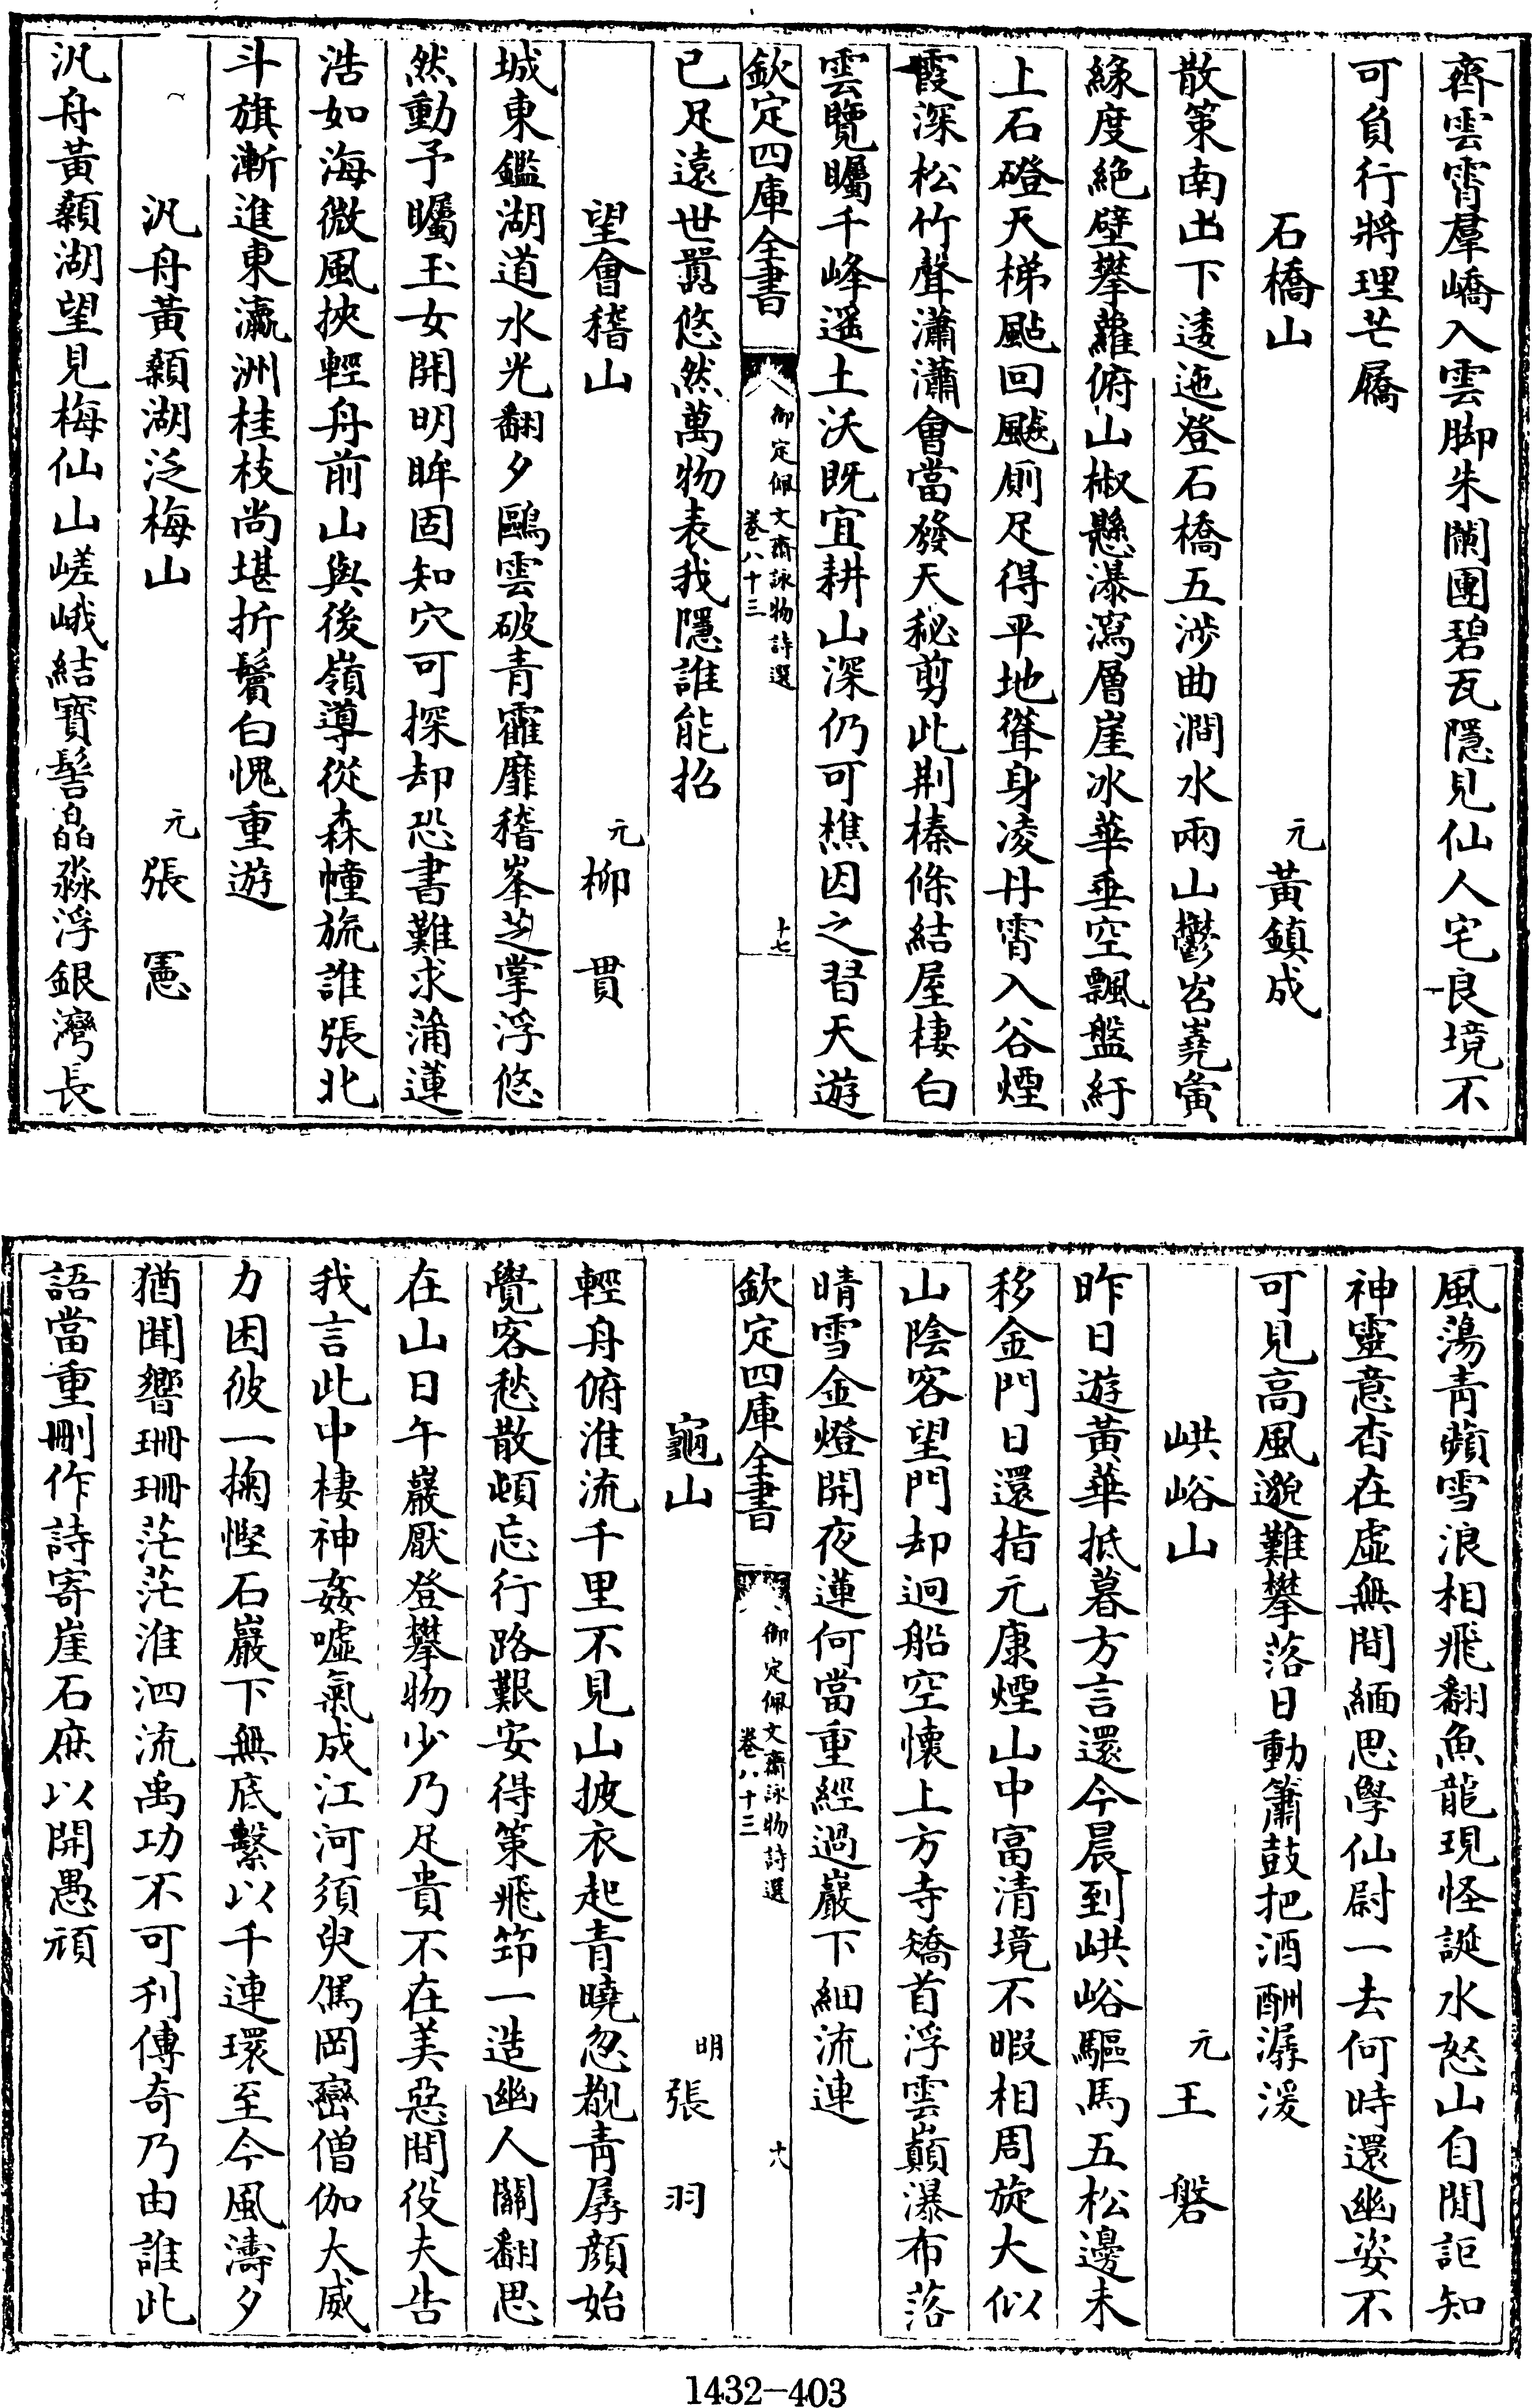 齊雲霄羣嶠入雲脚朱闌團碧瓦隱見仙人宅良境不
可負行將理芒屩
石橋山　元黃鎮成
散策南出下逶迤登石橋五渉曲澗水兩山鬱岧嶤夤
緣度絶壁攀蘿俯山椒懸瀑瀉層崖冰華垂空飄盤紆
上石磴天梯颭回飈廁足得平地聳身凌丹霄入谷煙
霞深松竹聲瀟瀟會當發天秘剪此荆榛條結屋棲白
雲覽矚千峰遥土沃既宜耕山深仍可樵因之習天遊
欽定四庫全書　御定佩文齋詠物詩選卷八十三　十七
已足遠世囂悠然萬物表我隱誰能招
望會稽山　元柳貫
城東鑑湖道水光翻夕鷗雲破青靃靡稽峯芝掌浮悠
然動予矚玉女開明眸固知穴可探却恐書難求蒲蓮
浩如海微風挾輕舟前山與後嶺導從森幢旒誰張北
斗旗漸進東瀛洲桂枝尚堪折鬢白愧重遊
汎舟黃顙湖泛梅山　元張憲
汎舟黃顙湖望見梅仙山嵯峨結寶髻皛淼浮銀灣長
風蕩青蘋雪浪相飛翻魚龍現怪誕水怒山自閒詎知
神靈意杳在虛無間緬思學仙尉一去何時還幽姿不
可見高風邈難攀落日動簫鼓把酒酬潺湲
峴峪山　元王磐
昨日遊黃華抵暮方言還今晨到峴峪驅馬五松邊未
移金門日還指元康煙山中富清境不暇相周旋大似
山陰客望門却迴船空懷上方寺矯首浮雲巔瀑布落
晴雪金燈開夜蓮何當重經過巖下細流連
欽定四庫全書　御定佩文齋詠物詩選卷八十三　十八
龜山　明張羽
輕舟俯淮流千里不見山披衣起青曉忽覩青孱顔始
覺客愁散頓忘行路艱安得策飛筇一造幽人關翻思
在山日午巖厭登攀物少乃足貴不在美惡間役夫告
我言此中棲神姦噓氣成江河須臾僞岡巒僧伽大威
力困彼一掬慳石巖下無底繫以千連環至今風濤夕
猶聞響珊珊茫茫淮泗流禹功不可刋傳奇乃由誰此
語當重刪作詩寄崖石庶以開愚頑
1432—403